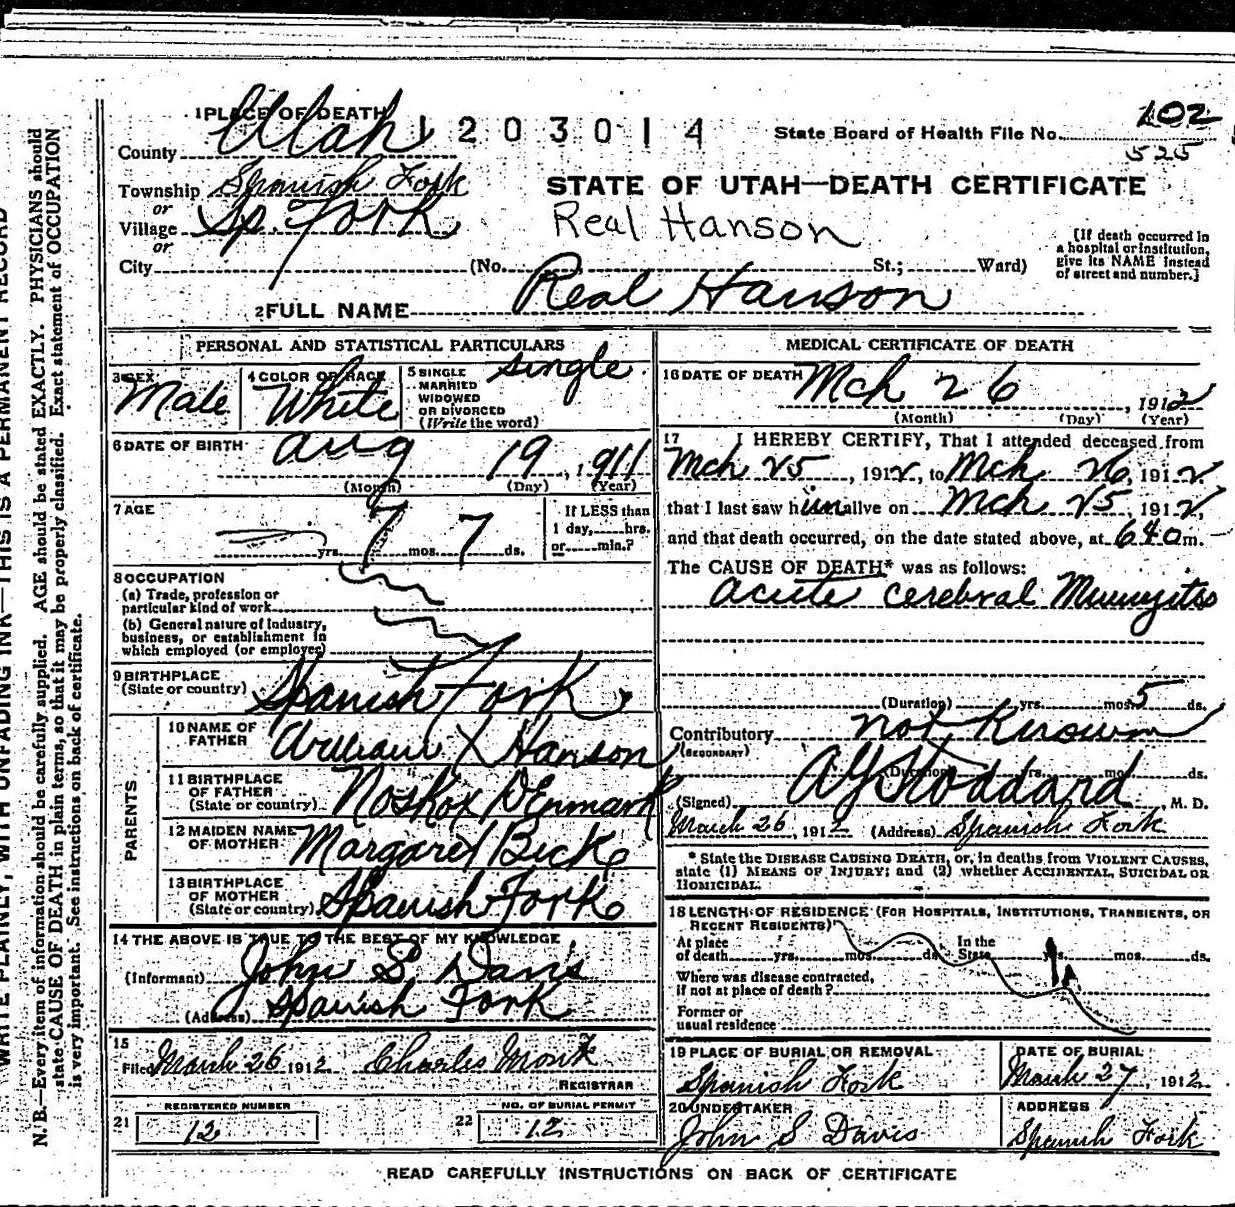 1 PLACE OF DEATH
1203014
State Board of Health File No. 102
525
County Utah
Township Spanish Fork
or
Village Sp. Fork
or
City (No. St.; Ward)
STATE OF UTAH—DEATH CERTIFICATE
Real Hanson
[If death occurred in
a hospital or institution,
give its NAME instead
of street and number.]
2 FULL NAME Real Hanson
PERSONAL AND STATISTICAL PARTICULARS
3 SEX
Male
4 COLOR OR RACE
White
5 SINGLE
MARRIED
WIDOWED
OR DIVORCED
(Write the word)
single
6 DATE OF BIRTH
Aug 19, 1911
(Month) (Day) (Year)
7 AGE
yrs. 7 mos. 7 ds.
If LESS than
1 day, hrs.
or min.?
8 OCCUPATION
(a) Trade, profession or
particular kind of work
(b) General nature of industry,
business, or establishment in
which employed (or employer)
9 BIRTHPLACE
(State or country) Spanish Fork
PARENTS
10 NAME OF
FATHER William X Hanson
11 BIRTHPLACE
OF FATHER
(State or country) Denmark
12 MAIDEN NAME
OF MOTHER Margaret
13 BIRTHPLACE
OF MOTHER
(State or country) Spanish Fork
14 THE ABOVE IS TRUE TO THE BEST OF MY KNOWLEDGE
(Informant) John S Davis
(Address) Spanish Fork
15
Filed March 26 1912 Charles Monk
REGISTRAR
REGISTERED NUMBER
21 12
NO. OF BURIAL PERMIT
22 12
MEDICAL CERTIFICATE OF DEATH
16 DATE OF DEATH
Mch 26, 1912
(Month) (Day) (Year)
17 I HEREBY CERTIFY, That I attended deceased from
Mch 25, 1912, to Mch 26, 1912
that I last saw him alive on Mch 25, 1912,
and that death occurred, on the date stated above, at 640 m.
The CAUSE OF DEATH* was as follows:
Acute cerebral Meningitis
(Duration) yrs. mos. 5 ds.
Contributory not Known
(SECONDARY)
(Duration) yrs. mo. ds.
(Signed) A Y Stoddard, M. D.
March 26, 1912 (Address) Spanish Fork
* State the DISEASE CAUSING DEATH, or, in deaths from VIOLENT CAUSES,
state (1) MEANS OF INJURY; and (2) whether ACCIDENTAL, SUICIDAL OR
HOMICIDAL.
18 LENGTH OF RESIDENCE (FOR HOSPITALS, INSTITUTIONS, TRANSIENTS, OR
RECENT RESIDENTS)
At place
of death yrs. mos. ds.
In the
State yrs. mos. ds.
Where was disease contracted,
if not at place of death?
Former or
usual residence
19 PLACE OF BURIAL OR REMOVAL
Spanish Fork
DATE OF BURIAL
March 27, 1912
20 UNDERTAKER
John S Davis
ADDRESS
Spanish Fork
READ CAREFULLY INSTRUCTIONS ON BACK OF CERTIFICATE
WRITE PLAINLY, WITH UNFADING INK—THIS IS A PERMANENT RECORD
N. B.—Every item of information should be carefully supplied. AGE should be stated EXACTLY. PHYSICIANS should
state CAUSE OF DEATH in plain terms, so that it may be properly classified. Exact statement of OCCUPATION
is very important. See instructions on back of certificate.